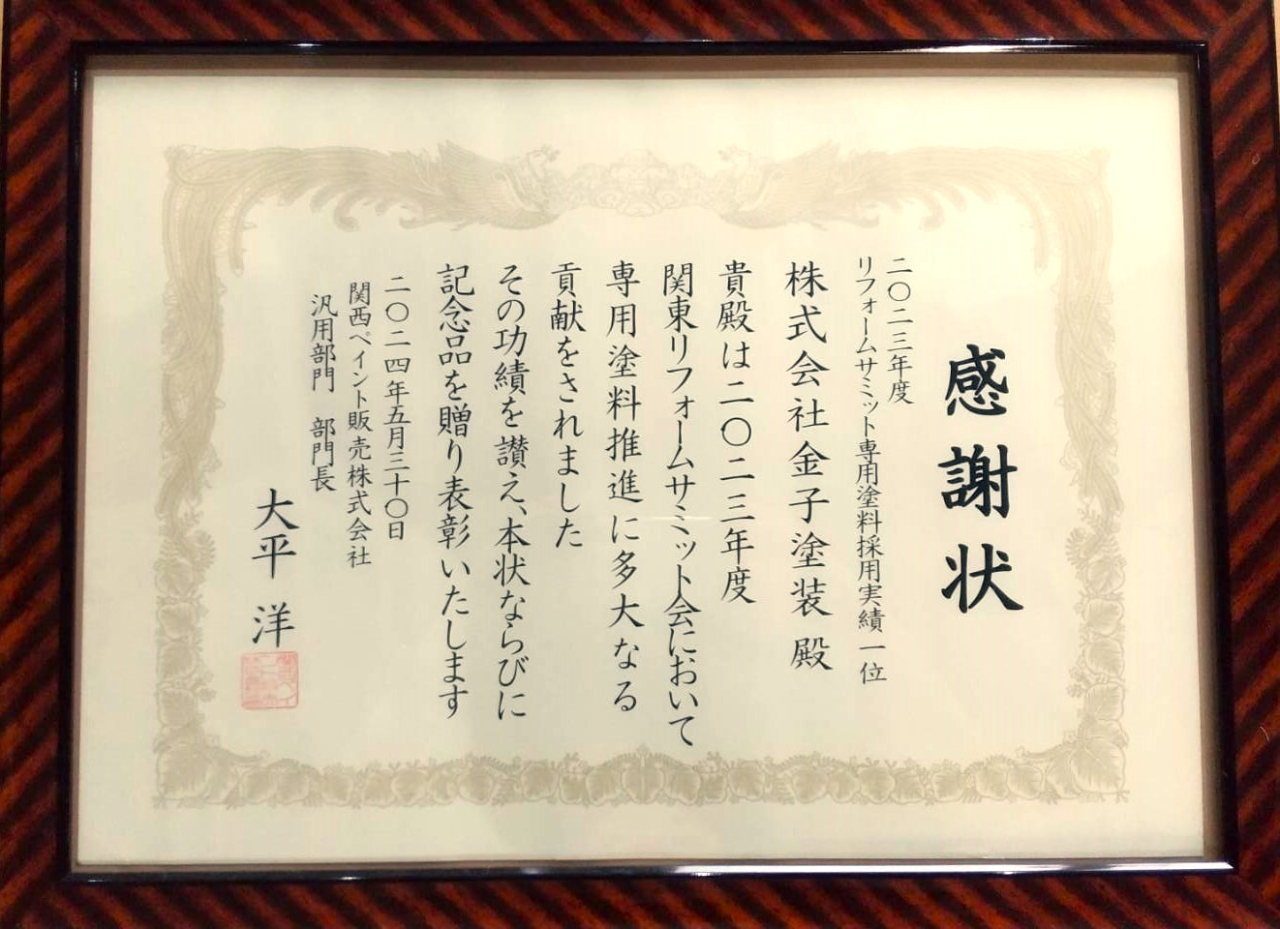 感謝状
二〇二三年度
リフォームサミット専用塗料採用実績 一位
株式会社金子塗装 殿
貴殿は二〇二三年度
関東リフォームサミット会において
専用塗料推進に多大なる
貢献をされました
その功績を讃え、本状ならびに
記念品を贈り表彰いたします
二〇二四年五月三十〇日
関西ペイント販売株式会社
汎用部門 部門長
大平 洋